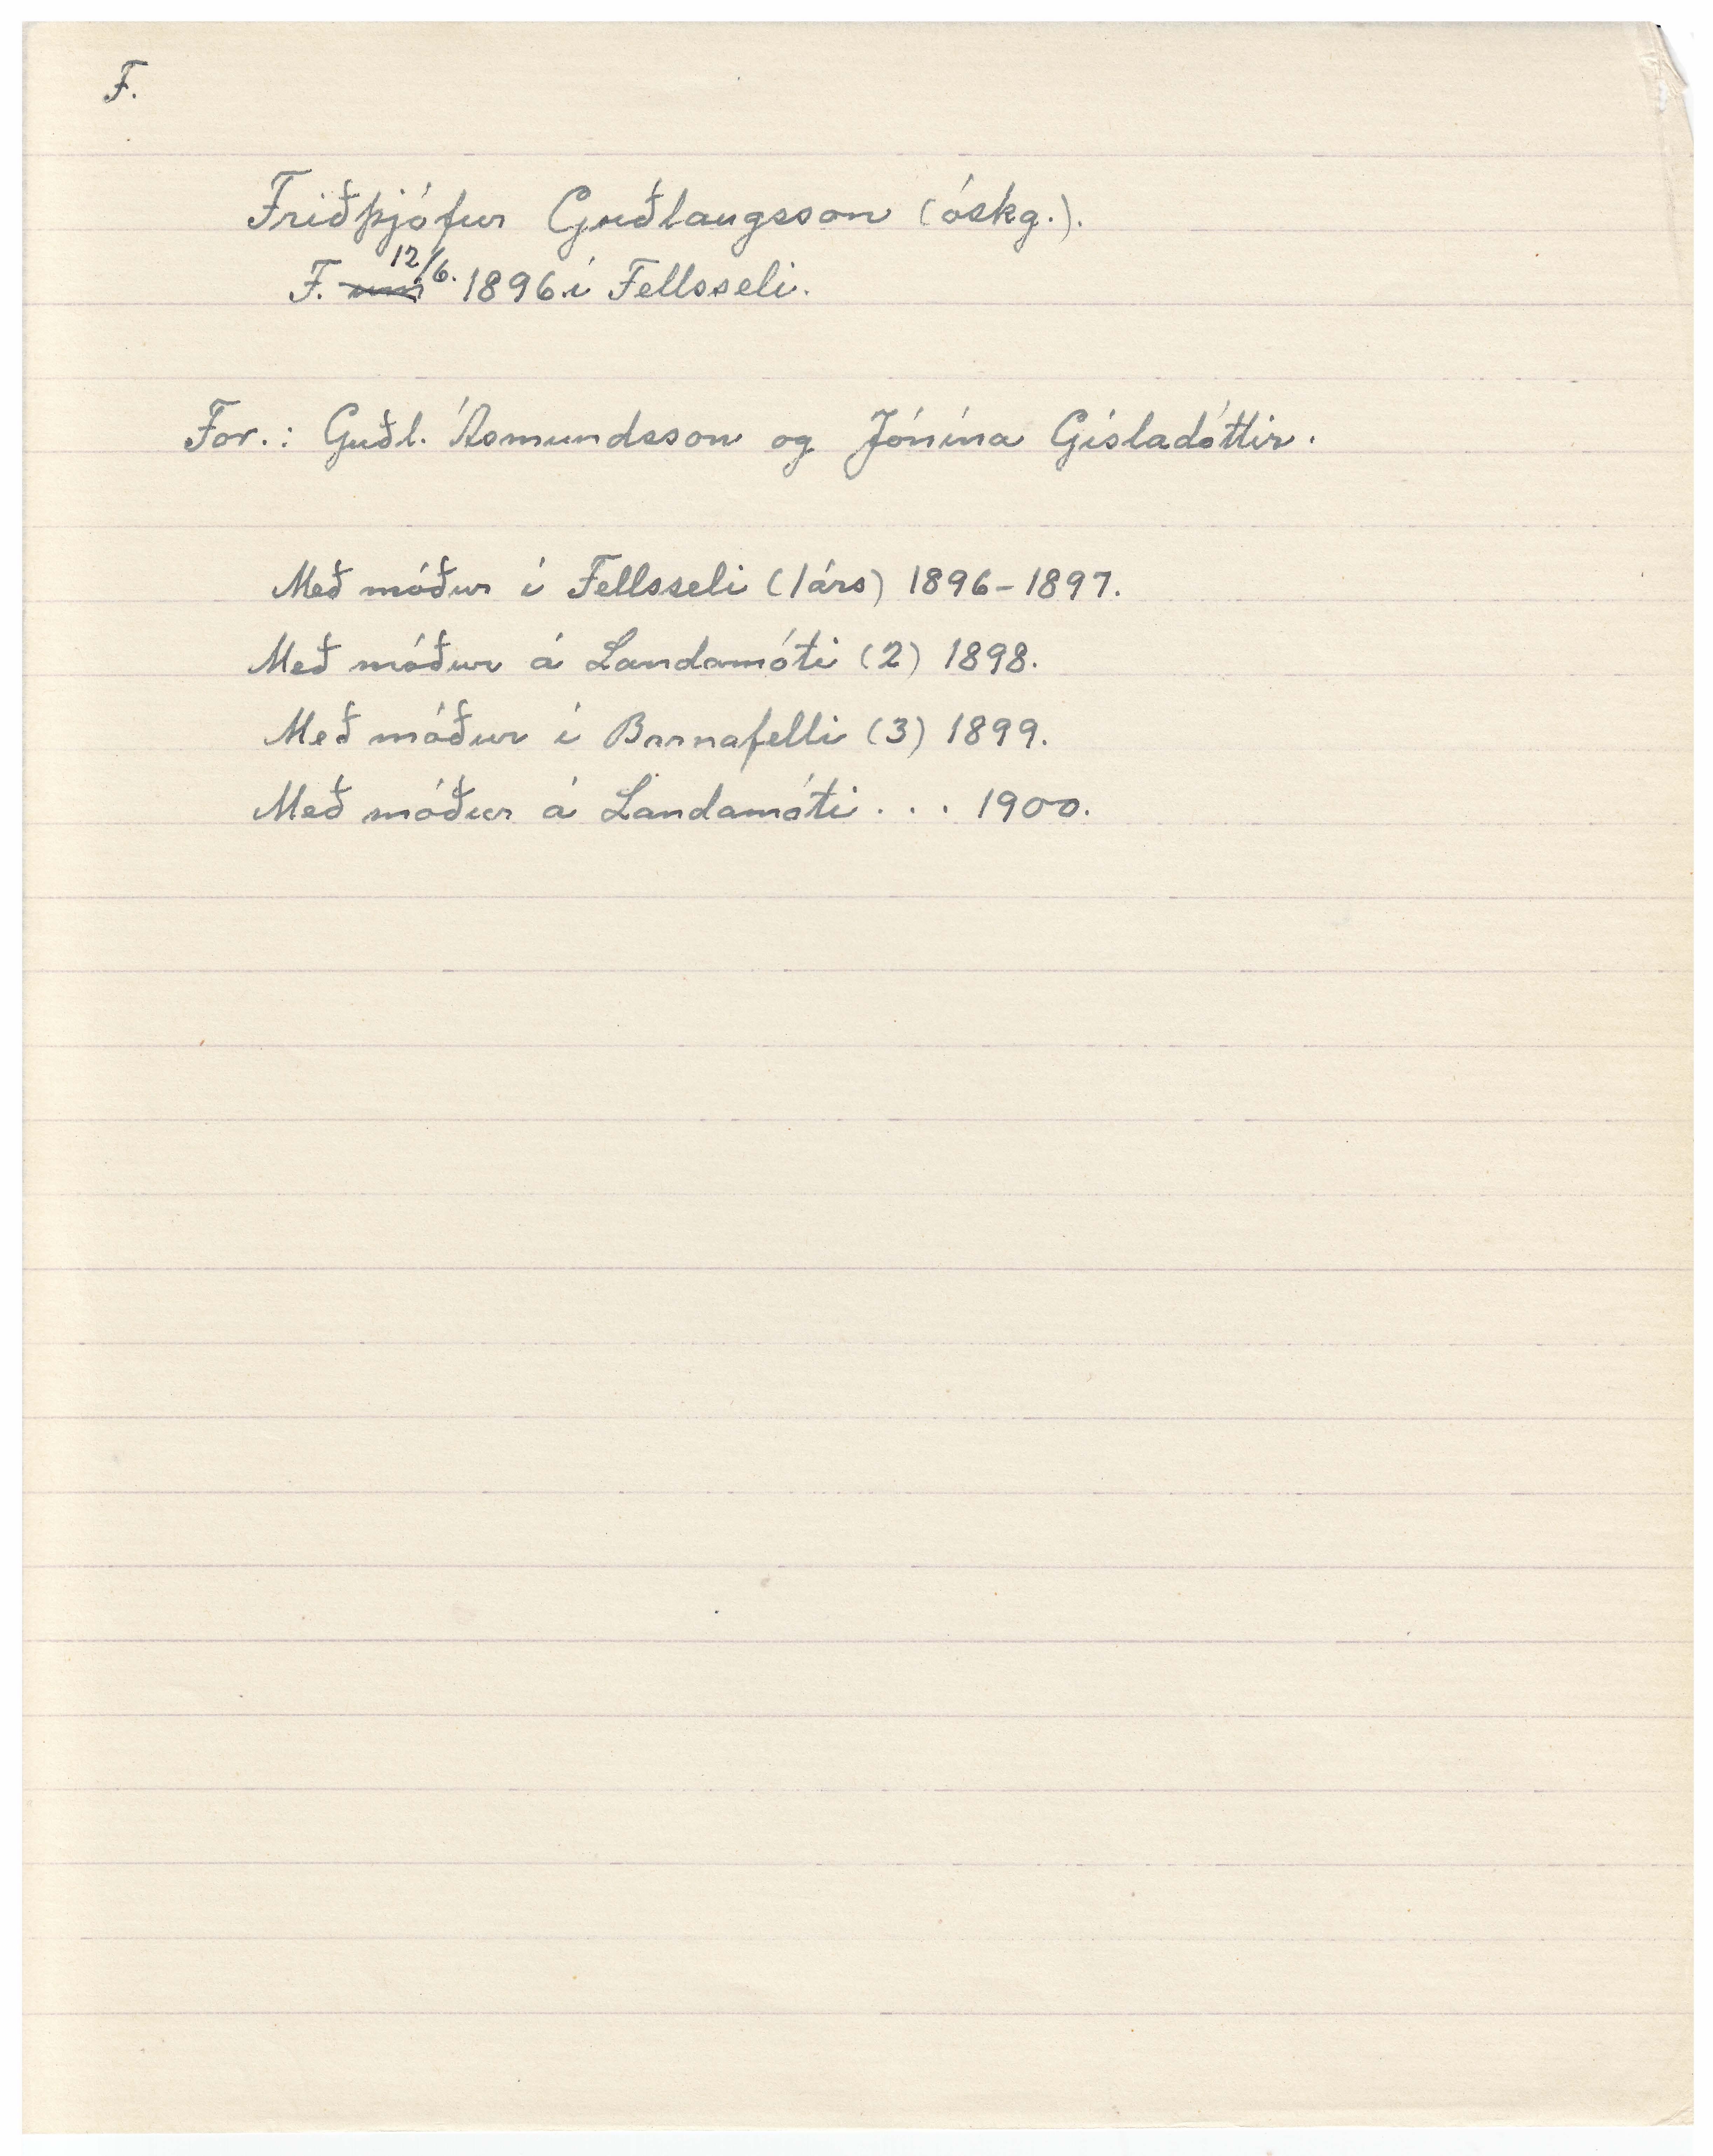 F.
Friðþjófur Guðlaugsson (óskg.).
F. 12/6. 1896 í Fellsseli.
For.: Guðl. Ásmundsson og Jónína Gísladóttir.
Með móður í Fellsseli (1árs) 1896-1897.
Með móður á Landamóti (2) 1898.
Með móður í Barnafelli (3) 1899.
Með móður á Landamóti . . . 1900.